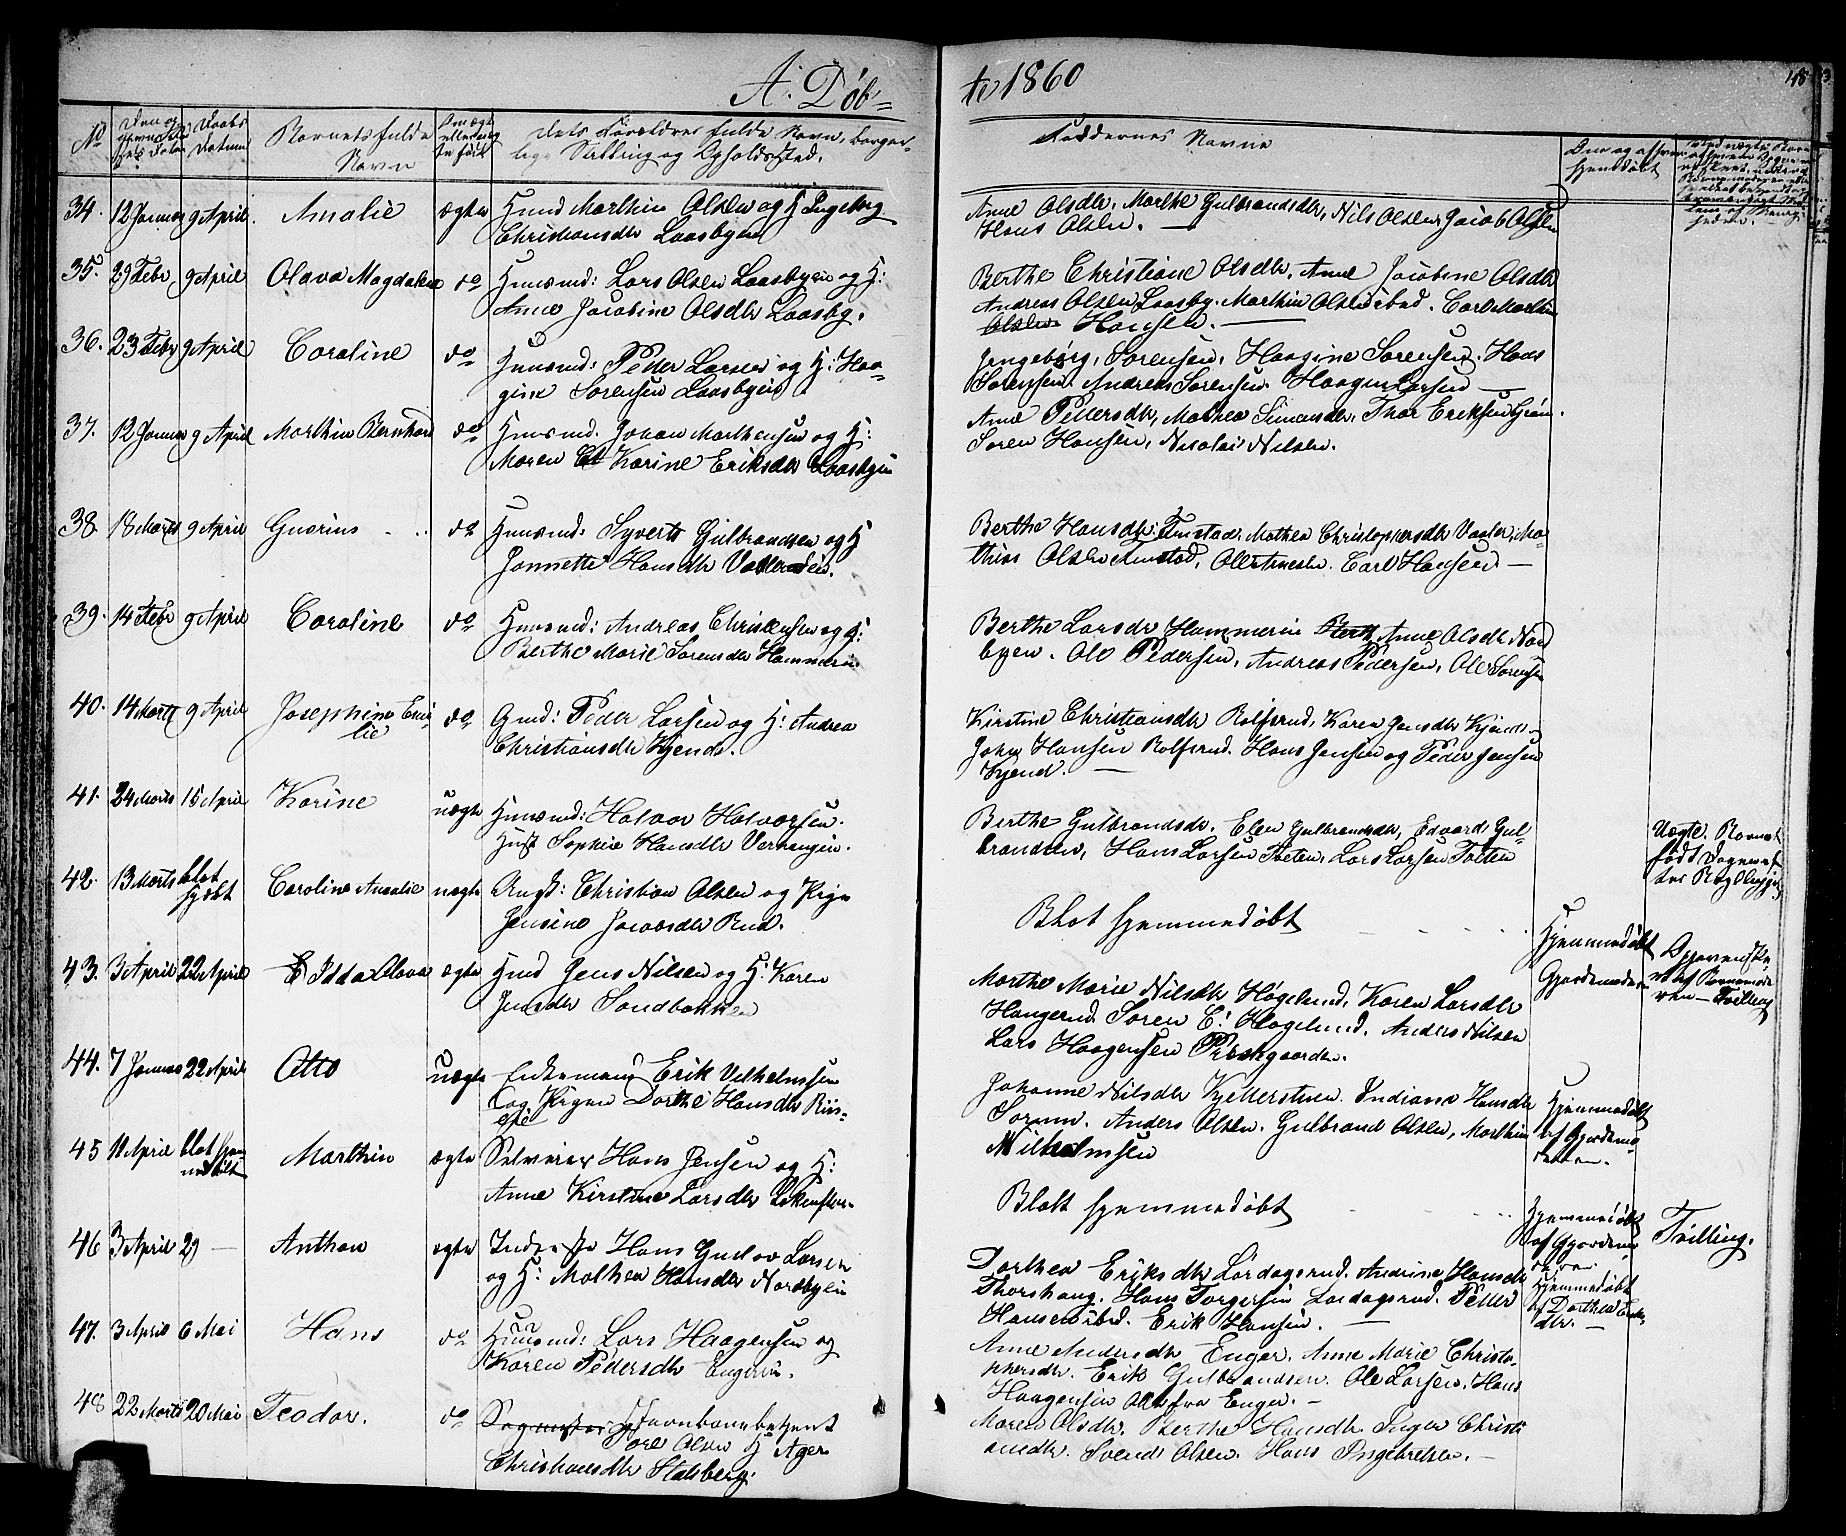 A. Døb=
te 1860
48
No
Den og
Døbs
Datum
Barnets fulde
Navn
Om ægte
Dets Forældres fulde Navn, borger-
lige Stilling og Opholdssted.
Faddernes Navne
34. 12 Januar 9 April. Amalie ægte Hmd Marthin Olsen og H Ingeborg
Christiansdtr Laasbyen
Anne Olsdtr, Marthe Gulbrandsdtr, Nils Olsen, Jacob Olsen
Hans Olsen. —
35. 29 Febr 9 April Olava Magdalene do Huusmd: Lars Olsen Laasbyen og H:
Anne Jacobine Olsdtr Laasby.
Berthe Christiane Olsdtr, Anne Jacobine Olsdtr
Andreas Olsen Laasby. Marthin Olsen ibid. Carl Marthin
Olsen Hansen. —
36. 23 Febr 9 April Caroline do Huusmd: Peder Larsen og H: Haa-
gine Sørensen Laasbyen
Ingebørg Sørensen, Haagine Sørensen. Hans
Sørensen. Andreas Sørensen. Haagen Larsen —
37. 12 Januar 9 April Marthin Bernhard do Huusmd. Johan Marthensen og H:
Maren Karine Eriksdtr Laasbyen
Anne Pedersdtr, Mathea Simensdtr, Thor Eriksen Grøn.
Søren Hansen, Nicolai Nilsen.
38 18 Marts 9 April Guorius do Huusmd: Syvert Gulbrandsen og H
Jonnette Hansdtr Valleraseie.
Berthe Hansdtr Amstad Mathea Christophersdtr Vasler, Ma-
thias Olsen Amstad, Carl Hansen —
39. 14 Febr 9 April Caroline do Huusmd: Andreas Christensen og H:
Berthe Marie Sørensdtr Hammerin
Berthe Larsdtr Hammerin Anne Olsdtr Nord
byen. Ole Pedersen, Andreas Pedersen, Ole Sørensen
40. 14 Marts 9 April Josephine Emi-
lie do Gmd: Peder Larsen og H: Andrea
Christiansdtr Kjends.
Kirstine Christiansdtr Rolfsrud, Karen Jensdtr Kjends
John Hansen Rolfsrud. Hans Jensen og Peder Jensen
Kjend. —
41. 24 Marts 15 April Karine uægte Huusmd: Halvor Halvorsen.
Hust Sophie Hansdtr Verhaugen.
Berthe Gulbrandsdtr. Elen Gulbrandsdtr, Edvard Gul-
brandsen, Hans Larsen Toten, Lars Larsen Toten
Uægte. Barnet
født Dagen ef-
ter
42. 13 Marts blot
hjdøbt Caroline Amalie uægte Ungk: Christian Olsen og Pige
Jensine Jacobsdtr Rud.
Blot hjemmedøbt
Hjemmedøbt
Gjordemoderen
43. 3 April 22 April Idda Olava ægte Hmd Jens Nilsen og H: Karen
Jensdtr Sandbakken
Marthe Marie Nilsdtr Høgelund, Karen Larsdtr
Haugerud. Søren E. Høgelund. Anders Nilsen
Lars Haagensen Præstgaarden.
44. 7 Januar 22 April Otto uægte Enkemand Erik Vilhelmsen
og Pigen Dorthe Hansdtr Riis-
eie
Johanne Nilsdtr Kjellerstuen. Indiane Hansdtr
Sorum. Anders Olsen. Gulbrand Olsen, Marthin
Wilhelmsen
Hjemmedøbt
af Gjordemo-
deren.
45 11 April blot hjem-
medøbt Marthin ægte Selveier Hans Jensen og H:
Anne Kirstine Larsdtr
Blott hjemmedøbt
Hjemmedøbt
af Gjordemo-
deren
Tvilling.
46 3 April 29 — Anthon ægte Inderste Hans Gustav Larsen
og H: Mathea Hansdtr Nordbyen
Dorthea Eriksdtr Lørdagsrud. Andrine Hansdtr
Thorshaug. Hans Torgersen Lørdagsrud. Peder
Hansen ibid. Erik Hansen.
Hjemmedøbt
af Dorthea Eriks-
dtr. —
47. 3 April 6 Mai Hans do Huusmd: Lars Haagensen og
Karen Pedersdtr Engerin.
Anne Andersdtr Enger. Anne Marie Christo-
phersdtr. Erik Gulbrandsen. Ole Larsen. Hans
Haagensen Alle fra Enger. —
48 22 Marts 20 Mai Teodor. do Jærnbanebetjent
Tore Olsen H Ager
Christiansdtr Stalsberg.
Maren Olsdtr. Berthe Hansdtr. Inger Christi
ansdtr. Svend Olsen. Hans Ingebretsen. —